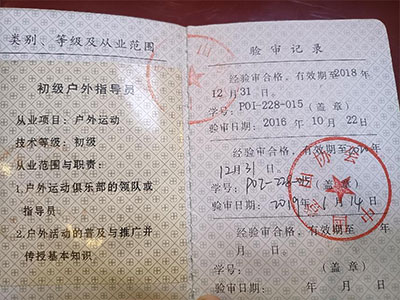 类别、等级及从业范围
初级户外指导员
从业项目：户外运动
技术等级：初级
从业范围与职责：
1.户外运动俱乐部的领队或
指导员
2.户外活动的普及与推广并
传授基本知识
验审记录
经验审合格，有效期至2018年
12月31日。
学号：P01-228-015（盖章）
验审日期：2016年10月22日
经验审合格，有效期至 年
12月31日。
学号：P02-228-（盖章）
验审日期：2019年1月14日
经验审合格，有效期至 年
月 日。
学号： （盖章）
验审日期： 年 月 日